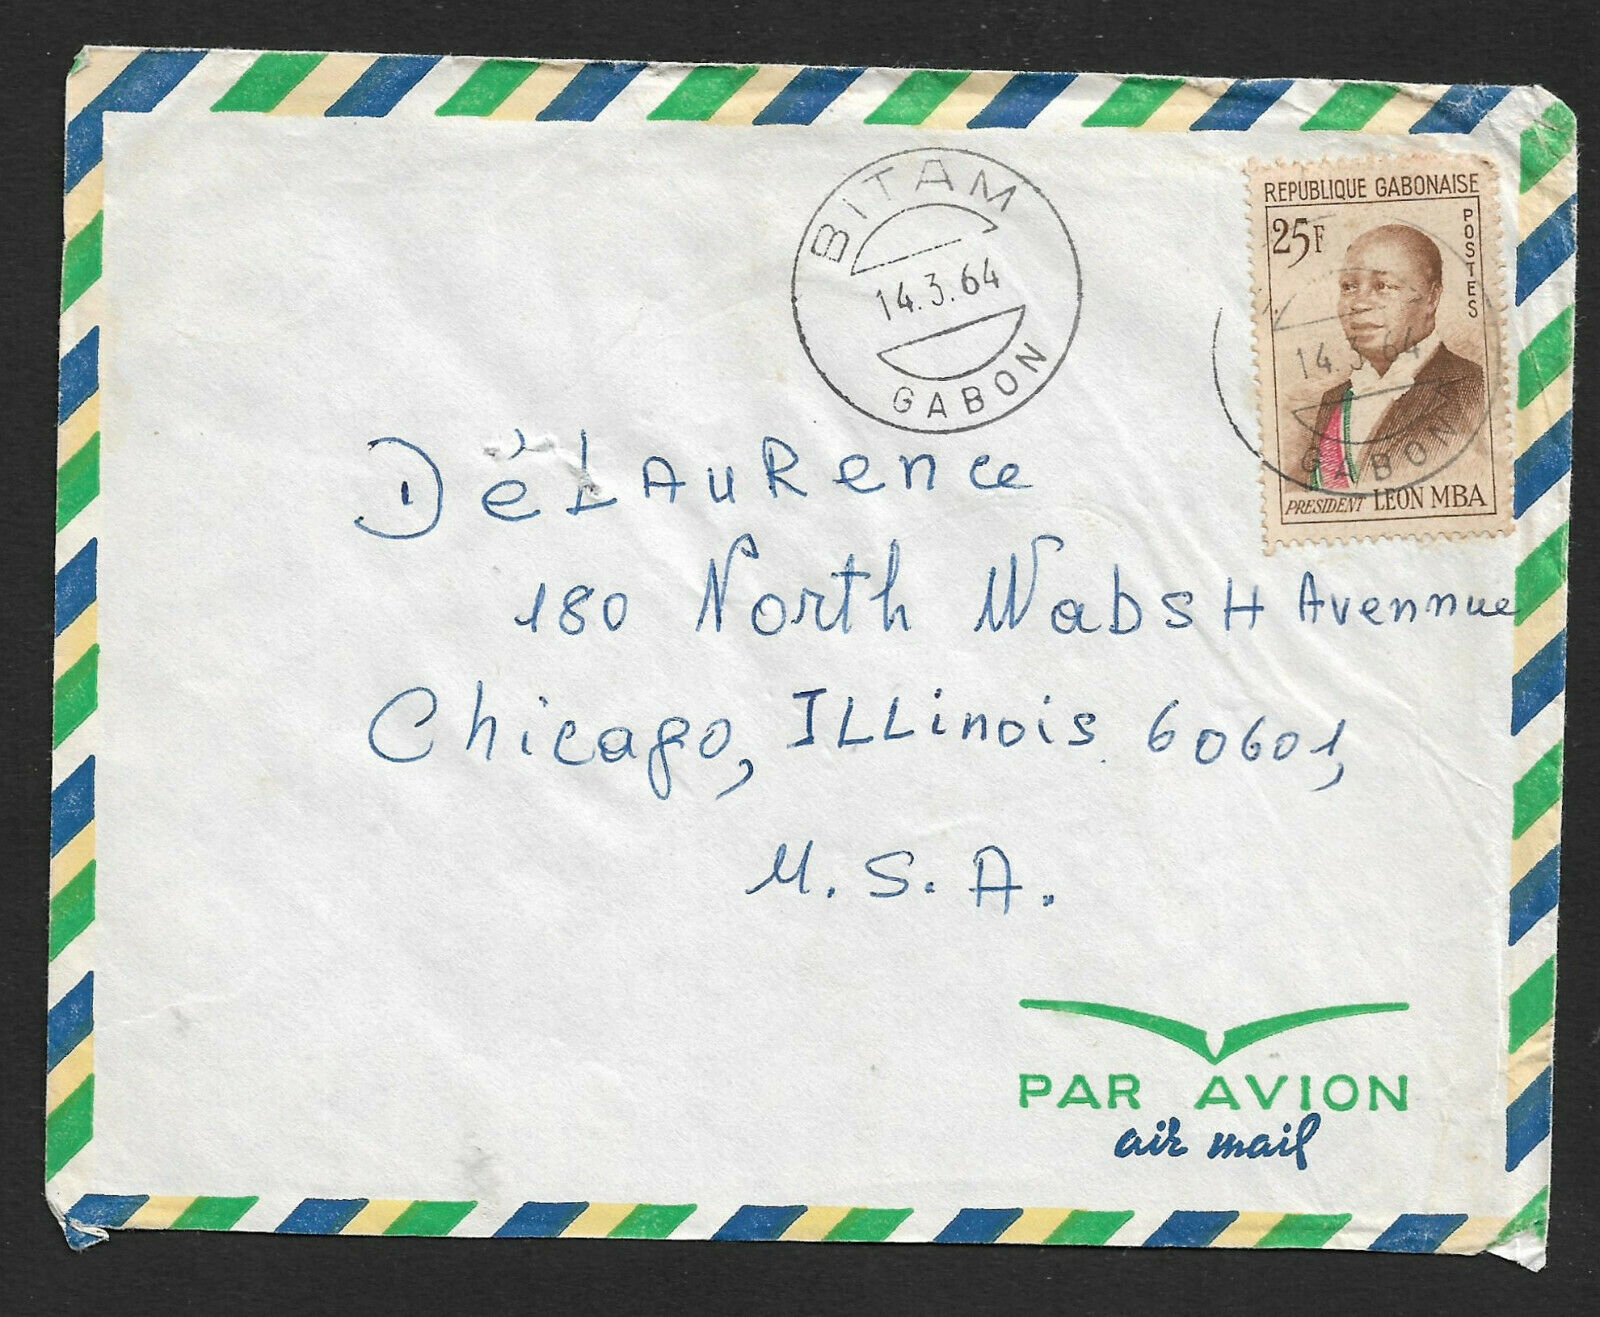 BITAM
14.3.64
GABON
REPUBLIQUE GABONAISE
25F
POSTES
14.3.64
GABON
PRESIDENT LEON MBA
DéLAuRence
180 North WabSH Avennue
Chicago, ILLinois 60601,
U.S.A.
PAR AVION
air mail